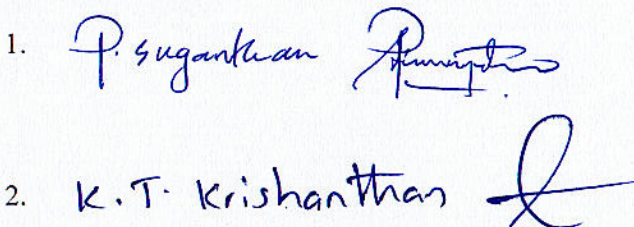 1. P. Suganthan
2. K.T. Krishanthan